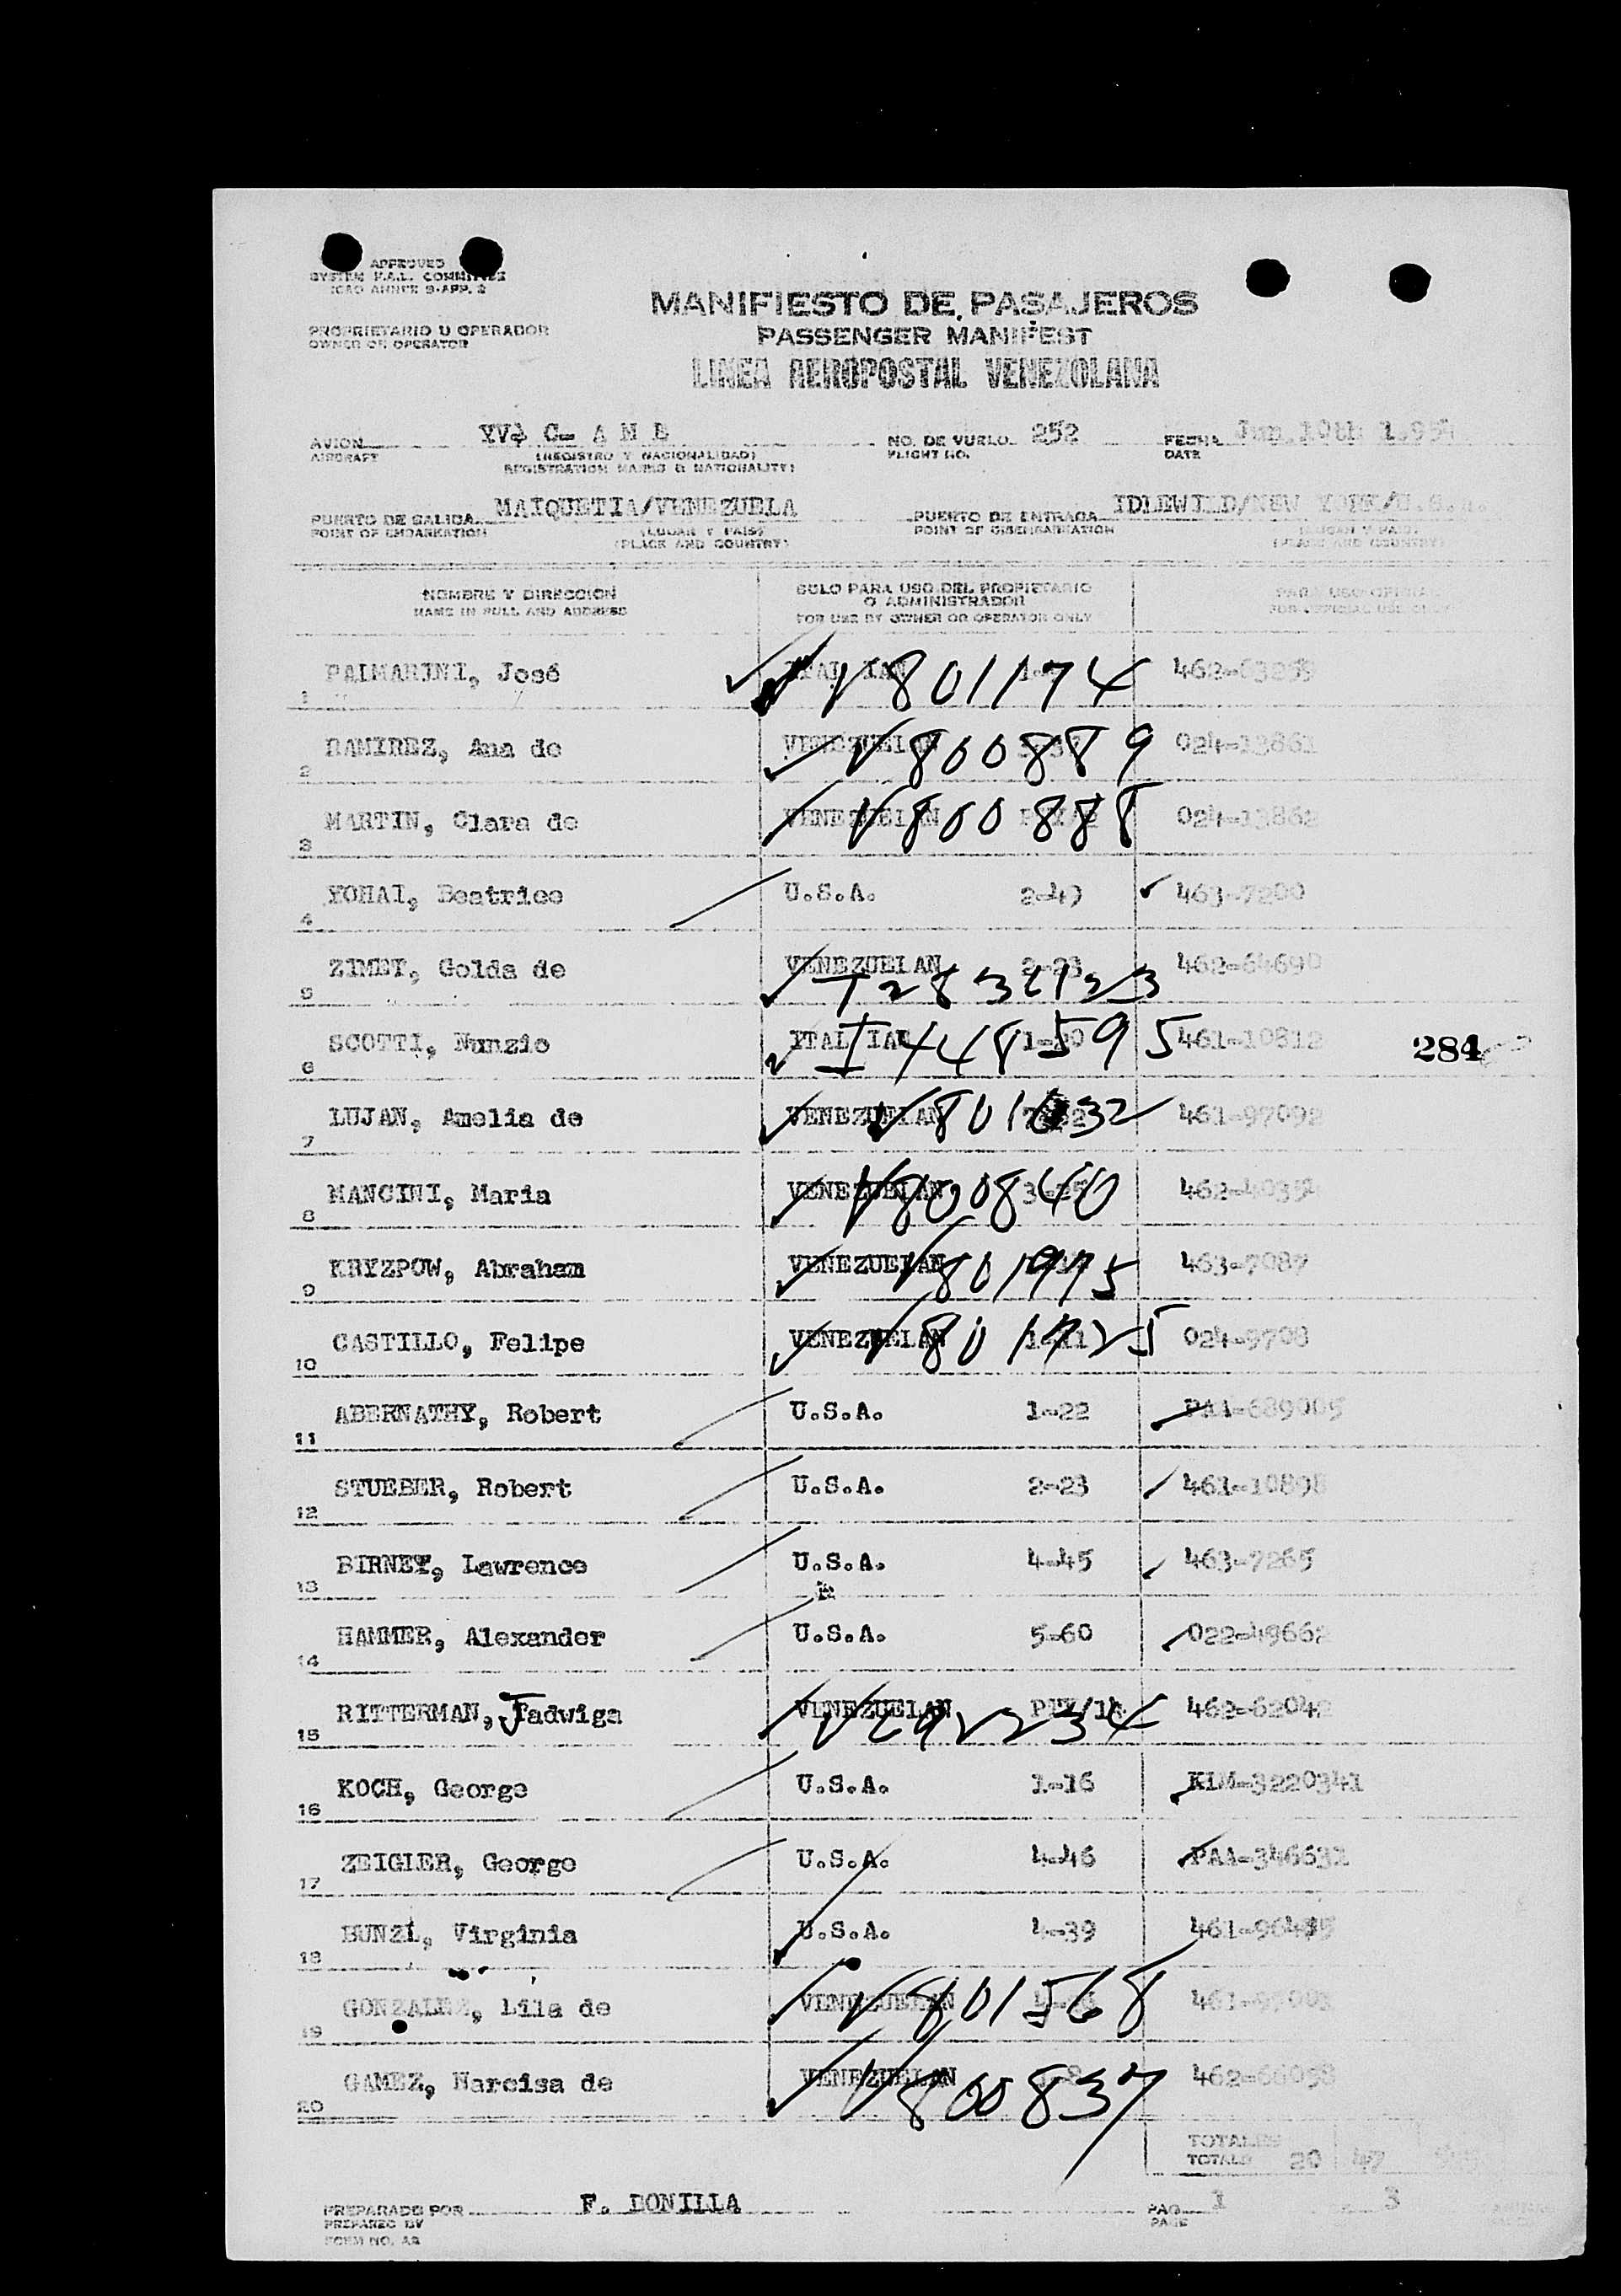 APPROVED
SYSTEM F.A.L. COMMITTEE
ICAO ANNEX 9-APP. 2
MANIFIESTO DE PASAJEROS
PROPRIETARIO U OPERADOR
OWNER OR OPERATOR
PASSENGER MANIFEST
LINEA AEROPOSTAL VENEZOLANA
AVION YV- C- A M E NO. DE VUELO 252 FECHA Jun 10th 1.954
AIRCRAFT (REGISTRO Y NACIONALIDAD) FLIGHT NO. DATE
REGISTRATION MARKS & NATIONALITY)
PUERTO DE SALIDA MAIQUETIA/VENEZUELA PUERTO DE ENTRADA IDLEWILD/NEW YORK/U.S.A.
POINT OF EMBARKATION (LUGAR Y PAIS) POINT OF DISEMBARKATION (LUGAR Y PAIS)
(PLACE AND COUNTRY) (PLACE AND COUNTRY)
NOMBRE Y DIRECCION SOLO PARA USO DEL PROPIETARIO PARA USO OFICIAL
NAME IN FULL AND ADDRESS O ADMINISTRADOR FOR OFFICIAL USE ONLY
FOR USE BY OWNER OR OPERATOR ONLY
1 PAIMARINI, José ITALIAN V801174
2 RAMIREZ, Ana de VENEZUELAN V800889 024-13861
3 MARTIN, Clara de VENEZUELAN V800888 024-13862
4 YOHAI, Beatrice U.S.A. 2-49 463-7200
5 ZIMET, Golda de VENEZUELAN 2-23 462-64690
6 SCOTTI, Nunzio ITALIAN I448595 461-10812 284
7 LUJAN, Amelia de VENEZUELAN V801032 461-97092
8 MANCINI, Maria VENEZUELAN V800840 462-40354
9 KRYZPOW, Abraham VENEZUELAN 463-7087
10 CASTILLO, Felipe VENEZUELAN 024-9708
11 ABERNATHY, Robert U.S.A. 1-22 PAA-689005
12 STUEBER, Robert U.S.A. 2-23 461-10898
13 BIRNEY, Lawrence U.S.A. 4-45 463-7265
14 HAMMER, Alexander U.S.A. 5-60 022-49662
15 RITTERMAN, Jadwiga VENEZUELAN 462-62042
16 KOCH, George U.S.A. 1-16 KLM-3220341
17 ZEIGLER, George U.S.A. 4-46 PAA-346631
18 BUNZL, Virginia U.S.A. 4-39
19 GONZALEZ, Lila de VENEZUELAN V801568
20 GAMEZ, Narcisa de VENEZUELAN V800837 462-66058
TOTALES
TOTALS 20 47
PREPARADO POR F. BONILLA PAG. 1 3
PREPARED BY PAGE
FORM NO. A2